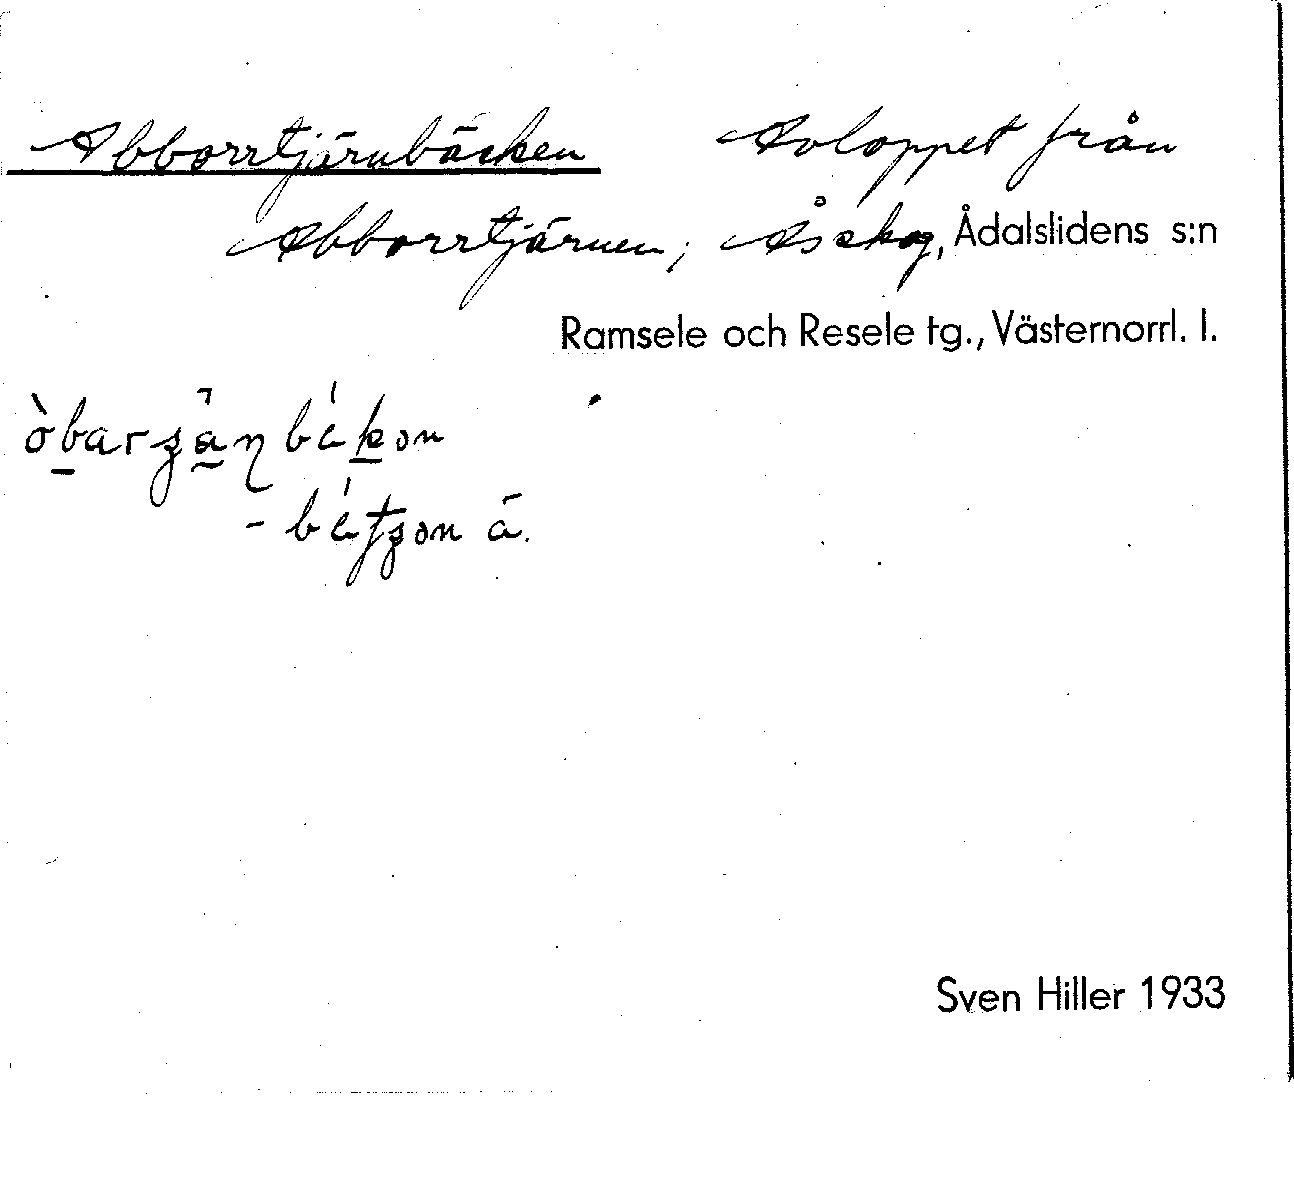 Abborrtjärnbäcken Avloppet från
Abborrtjärnen, Åskog, Ådalslidens s:n
Ramsele och Resele tg., Västernorrl. l.
Sven Hiller 1933